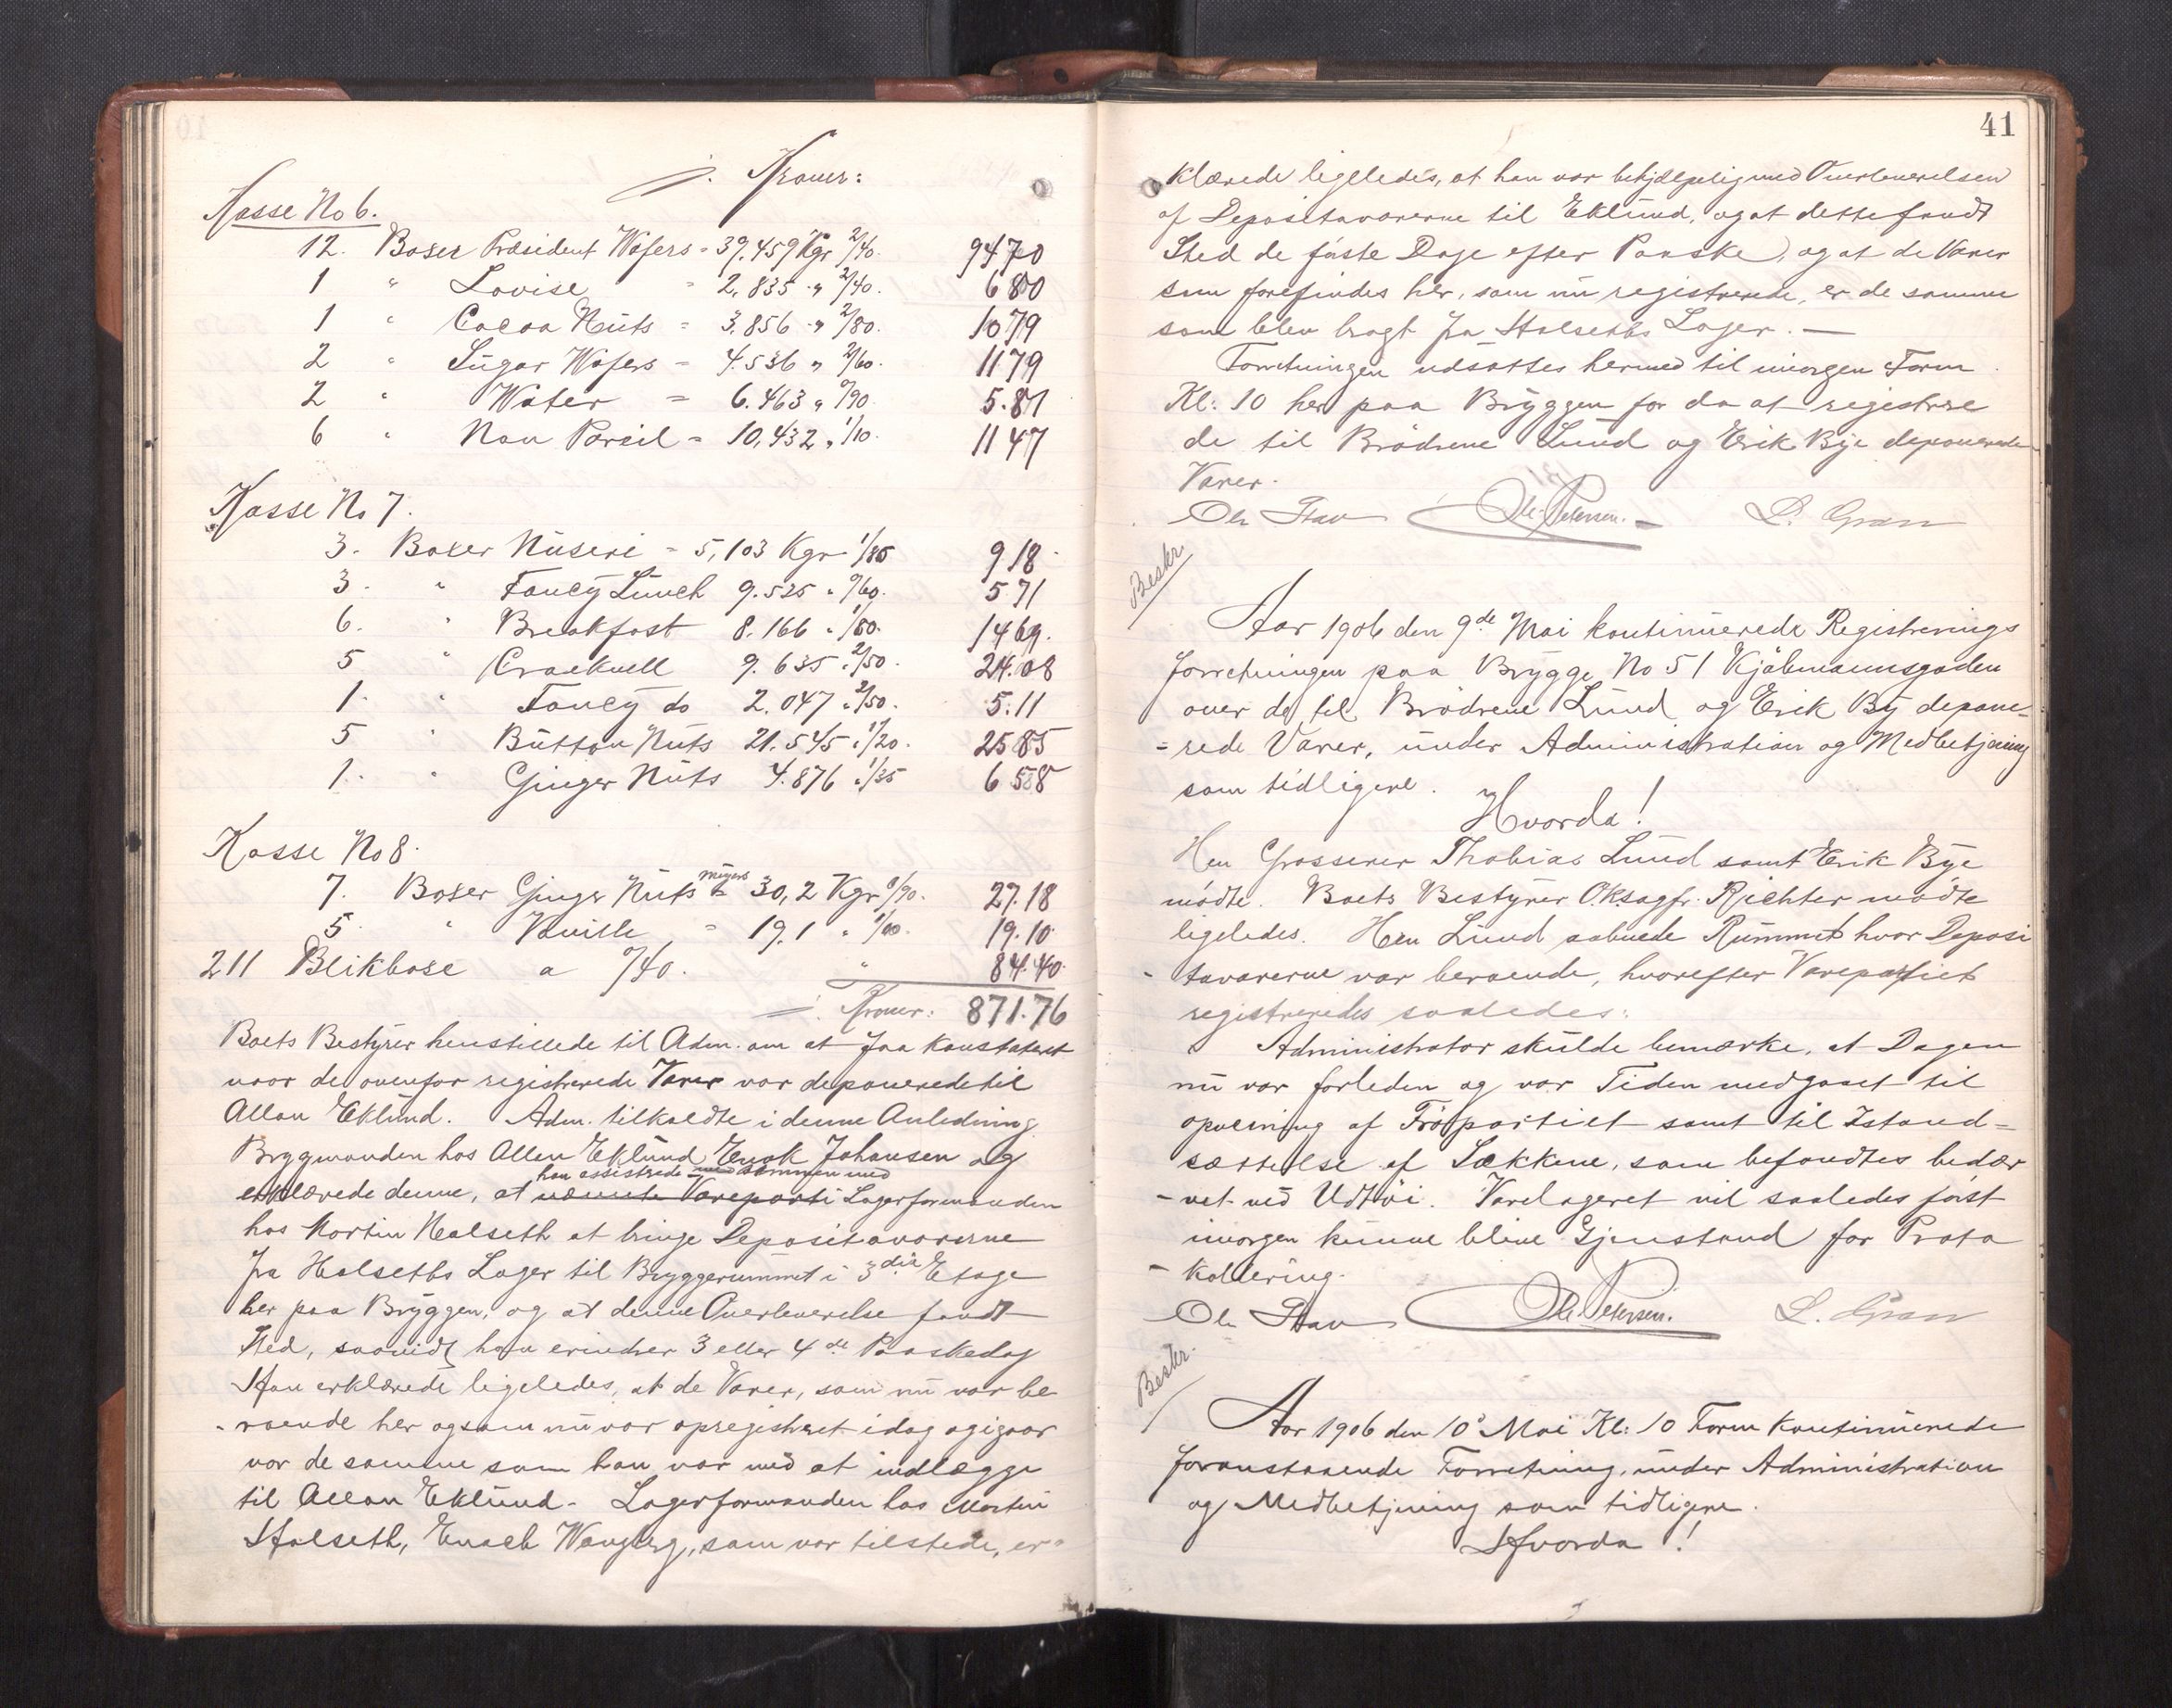 j. Kroner:
Kasse No 6.
12. Boxer Præsident Wafers = 39,459 Kgr 2/40. 94 70
1 " Lovise = 2,835 " 2/40. 6 80
1 " Cocoa Nuts = 3.856 " 2/80. 10 79
2 " Sugar Wafers = 4.536 " 2/60. 11 79
2 " Water = 6.463 " 0/90. 5.81
6 " Non Parcil = 10,432 " 1/10. 11 47
Kasse No 7.
3. Boxer Nuseri = 5,103 Kgr 1/80 9 18.
3. " Fancy Lunch 9.525 " 0/60. 5 71
6. " Breakfast 8.166 " 1/80. 14 69.
5 " Cracknell 9.635 " 2/50. 24.08
1. " Fancy do 2.047 " 2/50. 5.11
5 " Button Nuts 21.545 " 1/20. 25 85
1. " Ginger Nuts 4.876 " 1/35 6 58
Kasse No 8.
7. Boxer Ginger Nuts meyers = 30,2 Kgr 0/90. 27.18
5 " Vanille = 19,1 " 1/00. 19.10
211 Blikbose a 0/40. " 84.40.
j. Kroner: 871.76
Boets Bestyrer henstillede til Adm. om at faa konstateret
naar de ovenfor registrerede Varer var deponerede til
Allan Eklund. Adm. tilkaldte i denne Anledning
Bryggmanden hos Allan Eklund Enok Johansen og
han assistrede med sammen med
erklærede denne, at nævnte Vareparti Lagerformanden
hos Martin Halseth at bringe Depositavarerne
fra Halseths Lager til Bryggerummet i 3die Etage
her paa Bryggen, og at denne Overleverelse fandt
Sted, saavidt han erindrer 3 eller 4de Paaskedag
Han erklærede ligeledes, at de Varer, som nu var be
- roende her og som nu var opregistreret idag og igaar
var de samme som han var med at indlægge
til Allan Eklund. Lagerformanden hos Martin
Halseth, Enoch Wangberg, som var tilstede, er=
41
klærede ligeledes, at han var behjælpelig med Overleverelsen
af Depositavarerne til Eklund, og at dette fandt
Sted de første Dage efter Paaske, og at de Varer
som forefindes her, som nu registrerede, er de samme
som blev bragt fra Halseths Lager. —
Forretningen udsattes hermed til imorgen Form.
Kl: 10 her paa Bryggen for da at registrere
de til Brødrene Lund og Erik Bye deponerede
Varer.
Ole Stav Ole Petersen. L. Gran
Beskr.
Aar 1906 den 9de Mai kontinuerede Registrerings
forretningen paa Brygge No 51 Kjøbmannsgaden
over de til Brødrene Lund og Erik By depone=
= rede Varer, under Administration og Medbetjening
som tidligere.
Hvorda!
Herr Grosserer Thobias Lund samt Erik Bye
mødte. Boets Bestyrer Oksagfr. Richter mødte
ligeledes. Herr Lund aabnede Rummet hvor Deposi
- tavarerne var beroende, hvorefter Varepartiet
registreredes saaledes:
Administrator skulde bemærke, at Dagen
nu var forleden og var Tiden medgaaet til
opveining af Frøpartiet samt til Istand=
sættelse af Sækkene, som befandtes bedær
- vet ved Udtøi. Varelageret vil saaledes først
imorgen kunne blive Gjenstand for Proto
- kollering.
Ole Stav Ole Petersen. L. Gran
Beskr.
Aar 1906 den 10' Mai Kl: 10 Form kontinuerede
foranstaaende Forretning, under Administration
og Medbetjening som tidligere.
Hvorda!